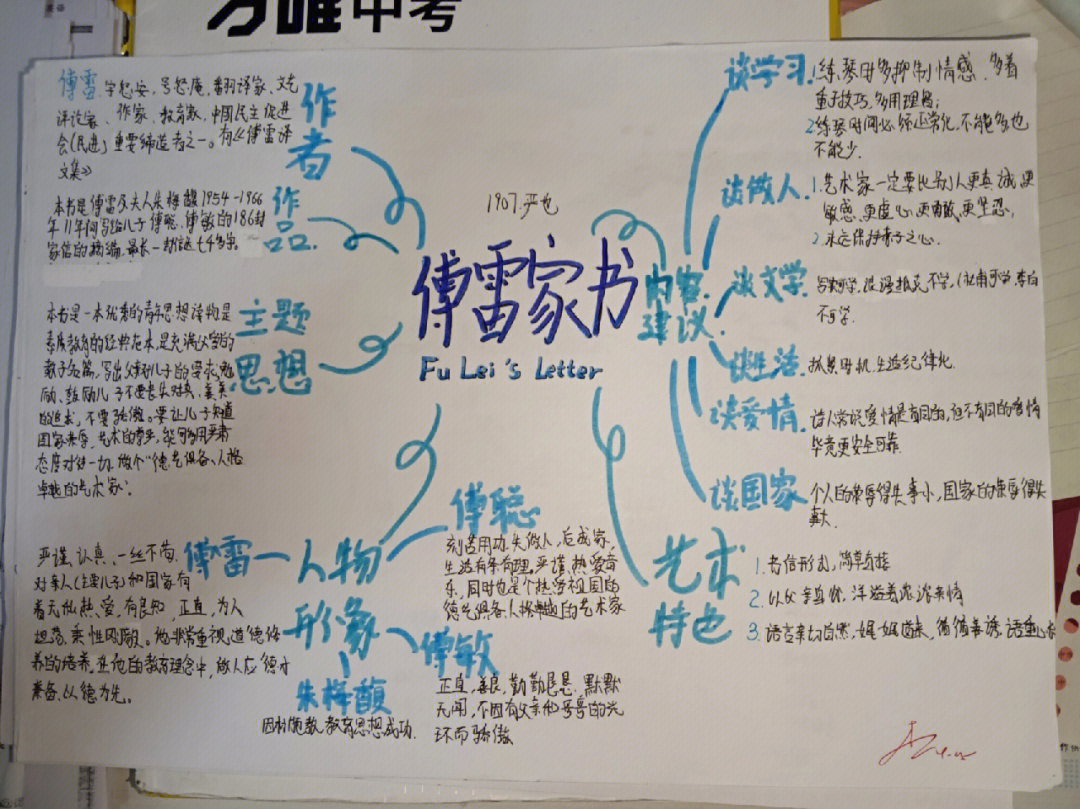 万唯中考
傅雷,字怒安,号怒庵,翻译家、文艺
评论家、作家、教育家,中国民主促进
会(民进)重要缔造者之一。有《傅雷译
文集》
作者
本书是傅雷及夫人朱梅馥1954-1966
年11年间写给儿子傅聪、傅敏的186封
家信的摘编,最长一封信七千多字
作品
本书是一本优秀的青年思想读物,是
素质教育的经典范本,是充满父爱的
教子名篇,写出父亲对儿子的要求,勉
励、鼓励儿子不要丧失对真、善、美
的追求,不要骄傲。要让儿子知道
国家荣辱、艺术的尊严,能够用严肃
态度对待一切,做个“德艺俱备、人格
卓越的艺术家”。
主题
思想
1907.严也
傅雷家书
Fu Lei's Letter
内容
建议
谈学习
1.练琴时多抑制情感,多着
重于技巧,多用理智;
2.练琴时间必须正常化,不能多也
不能少.
谈做人
1.艺术家一定要比别人更真诚,更
敏感,更虚心,更勇敢,更坚忍,
2.永远保持赤子之心.
谈文学
李白
不可学.
谈生活
抓紧时机,生活纪律化.
谈爱情
诗人常说爱情是盲目的,但不盲目的爱情
毕竟更安全可靠
谈国家
个人的荣辱得失事小,国家的荣辱得失
事大.
艺术
特色
1.书信形式,简单直接
2.以父亲身份,洋溢着浓浓亲情
3.语言亲切自然,娓娓道来,循循善诱,语重心长
人物
形象
傅雷
严谨、认真、一丝不苟,
对亲人(主要儿子)和国家有
着无私热爱,有良知,正直,为人
坦荡,秉性刚毅。他非常重视道德修
养的培养,在他的教育理念中,做人应德才
兼备、以德为先。
傅聪
刻苦用功,先做人,后成家,
生活有条有理,严谨,热爱音
乐,同时也是个热爱祖国的
德艺俱备、人格卓越的艺术家
傅敏
正直、善良、勤勤恳恳、默默
无闻,不因有父亲和哥哥的光
环而骄傲
朱梅馥
因材施教,教育思想成功.